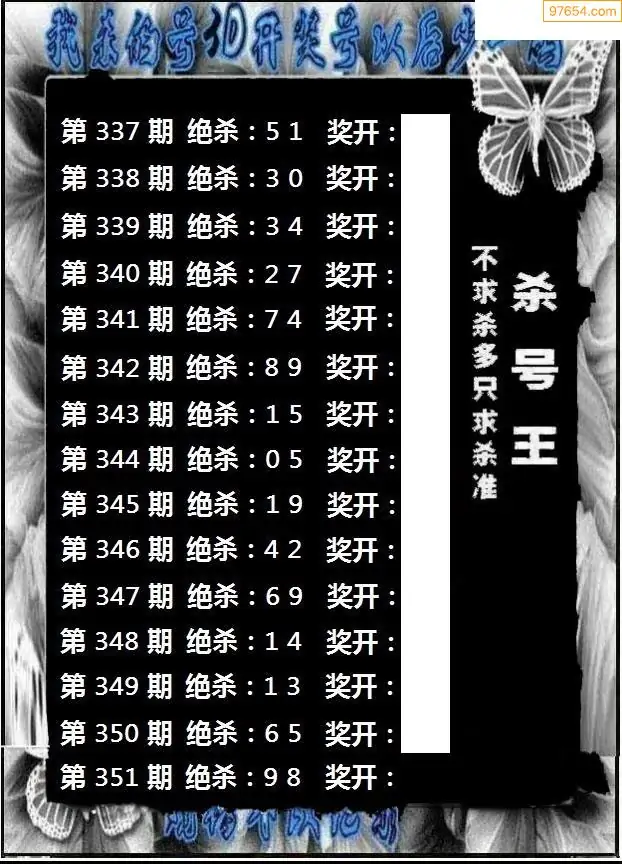 97654.com
我杀的号3D开奖号以后少
第 337 期 绝杀：5 1 奖开：
第 338 期 绝杀：3 0 奖开：
第 339 期 绝杀：3 4 奖开：
第 340 期 绝杀：2 7 奖开：
第 341 期 绝杀：7 4 奖开：
第 342 期 绝杀：8 9 奖开：
第 343 期 绝杀：1 5 奖开：
第 344 期 绝杀：0 5 奖开：
第 345 期 绝杀：1 9 奖开：
第 346 期 绝杀：4 2 奖开：
第 347 期 绝杀：6 9 奖开：
第 348 期 绝杀：1 4 奖开：
第 349 期 绝杀：1 3 奖开：
第 350 期 绝杀：6 5 奖开：
第 351 期 绝杀：9 8 奖开：
杀号王
不求杀多只求杀准